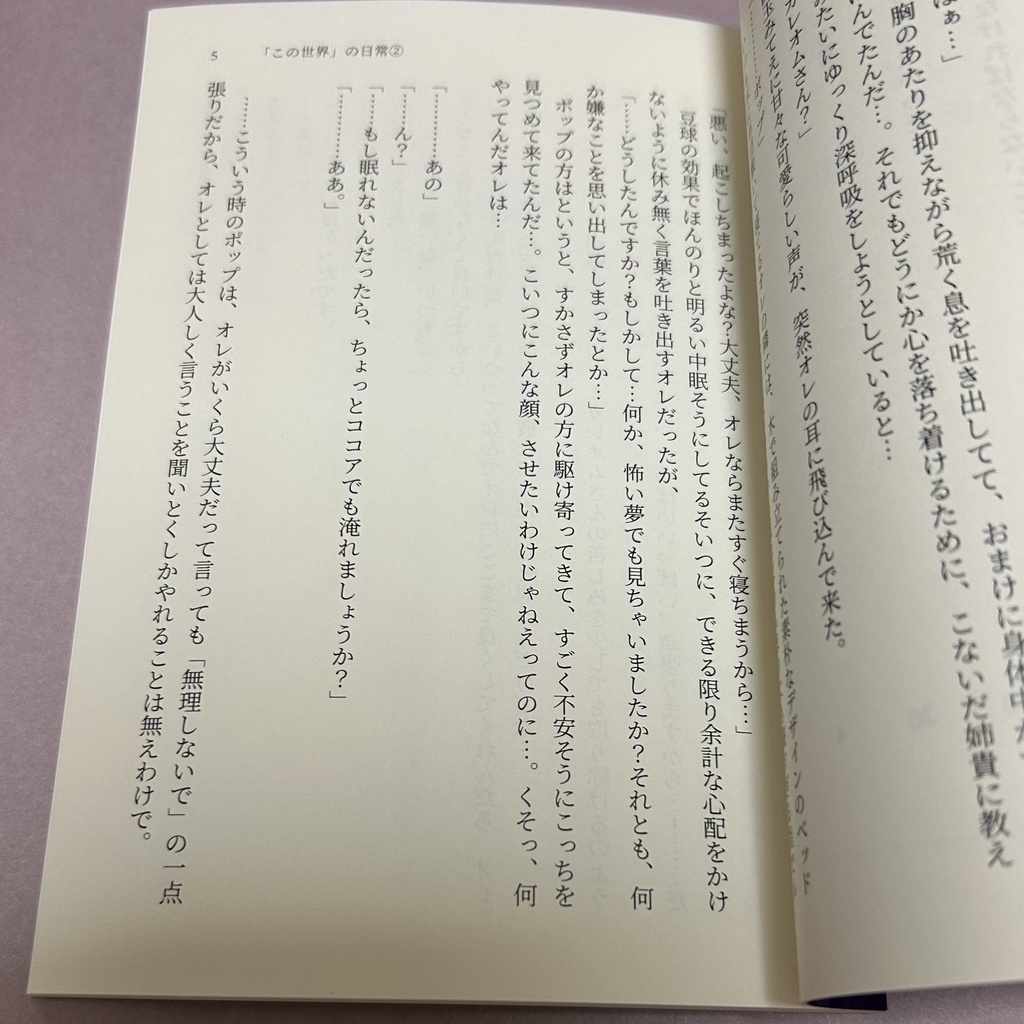 はぁ…」
胸のあたりを抑えながら荒く息を吐き出してて、おまけに身体中が、
んでたんだ…。それでもどうにか心を落ち着けるために、こないだ姉貴に教え
みたいにゆっくり深呼吸をしようとしていると…
ガレオムさん?」
みてえに甘々な可愛らしい声が、突然オレの耳に飛び込んで来た。
ポップ」
には、木で組み立てられた素朴なデザインのベッド
5
「この世界」の日常②
「悪い、起こしちまったよな?大丈夫、オレならまたすぐ寝ちまうから…」
豆球の効果でほんのりと明るい中眠そうにしてるそいつに、できる限り余計な心配をかけ
ないように休み無く言葉を吐き出すオレだったが、
「……どうしたんですか?もしかして…何か、怖い夢でも見ちゃいましたか?それとも、何
か嫌なことを思い出してしまったとか…」
ポップの方はというと、すかさずオレの方に駆け寄ってきて、すごく不安そうにこっちを
見つめて来てたんだ…。こいつにこんな顔、させたいわけじゃねえってのに…。くそっ、何
やってんだオレは…
「…………あの」
「……ん?」
「……もし眠れないんだったら、ちょっとココアでも淹れましょうか?」
「…………ああ。」
……こういう時のポップは、オレがいくら大丈夫だって言っても「無理しないで」の一点
張りだから、オレとしては大人しく言うことを聞いとくしかやれることは無えわけで。